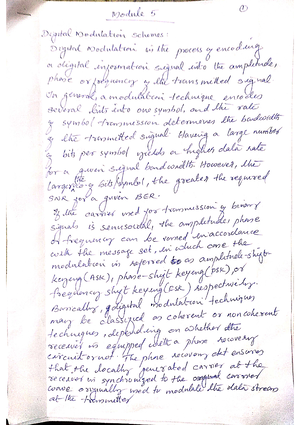 Module 5
①
Digital Modulation Schemes:
Digital Modulation is the process of encoding
a digital information signal into the amplitude,
phase or frequency of the transmitted signal
In general, a modulation technique encodes
several bits into one symbol, and the rate
of symbol transmission determines the bandwidth
of the transmitted signal. Having a large number
of bits per symbol yields a higher data rate
for a given signal bandwidth. However, the
larger the no of bits/symbol, the greater the required
SNR for a given BER.
If the carrier used for transmission of binary
signals is sinusoidal, the amplitude, phase
or frequency can be varied in accordance
with the message set, in which case the
modulation is referred to as amplitude-shift-
keying (ASK), phase-shift keying (PSK) or
frequency shift keying (FSK) respectively.
Basically, digital modulation techniques
may be classified as coherent or noncoherent
techniques, depending on whether the
receiver is equipped with a phase recovery
circuit or not. The phase recovery ckt ensures
that the locally generated carrier at the
receiver is synchronized to the original carrier
wave originally used to modulate the data stream
at the transmitter